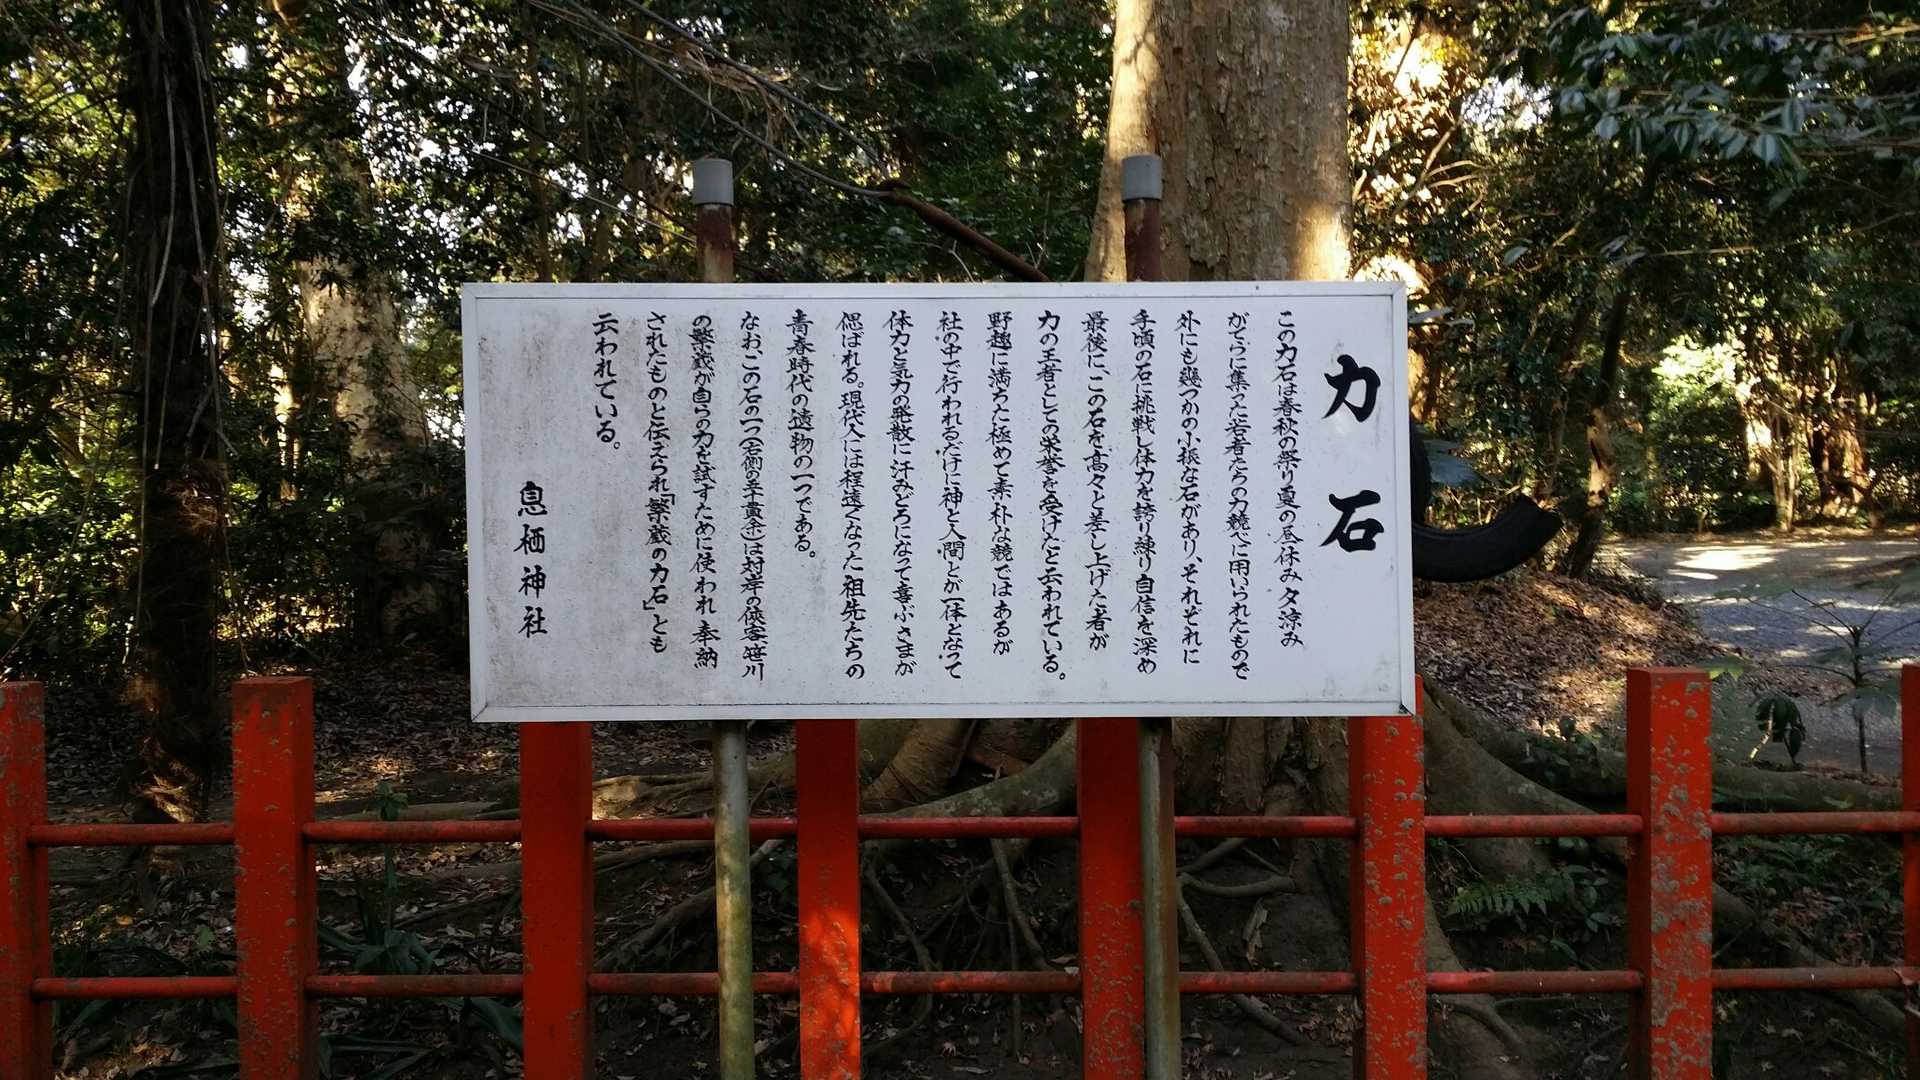 力石
この力石は春秋の祭り夏の昼休み夕涼み
がてらに集った若者たちの力競べに用いられたもので
外にも幾つかの小振な石があり、それぞれに
手頃の石に挑戦し体力を誇り練り自信を深め
最後に、この石を高々と差し上げた者が
力の王者としての栄誉を受けたと云われている。
野趣に満ちた極めて素朴な競ではあるが
社の中で行われるだけに神と人間とが一体となって
体力と気力の発散に汗みどろになって喜ぶさまが
偲ばれる。現代人には程遠くなった祖先たちの
青春時代の遺物の一つである。
なお、この石の一つ(右側の五十貫余)は対岸の侠客笹川
の繁蔵が自らの力を試すために使われ奉納
されたものと伝えられ「繁蔵の力石」とも
云われている。
息栖神社